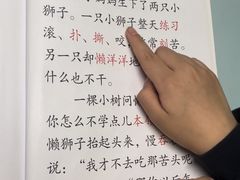 妈妈生下了两只小
狮子。一只小狮子整天练习
滚、扑、撕、咬，非常刻苦。
另一只却懒洋洋地
什么也不干。
一棵小树问懒
你怎么不学点儿本
懒狮子抬起头来，慢吞
说："我才不去吃那苦头呢